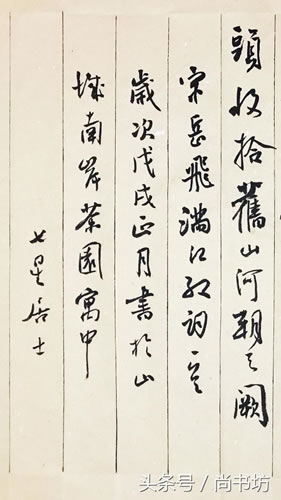 頭收拾舊山河朝天闕
宋岳飛滿江紅詞一首
歲次戊戌正月書於山
城南岸茶園寓中
七星居士
头条号/尚书坊